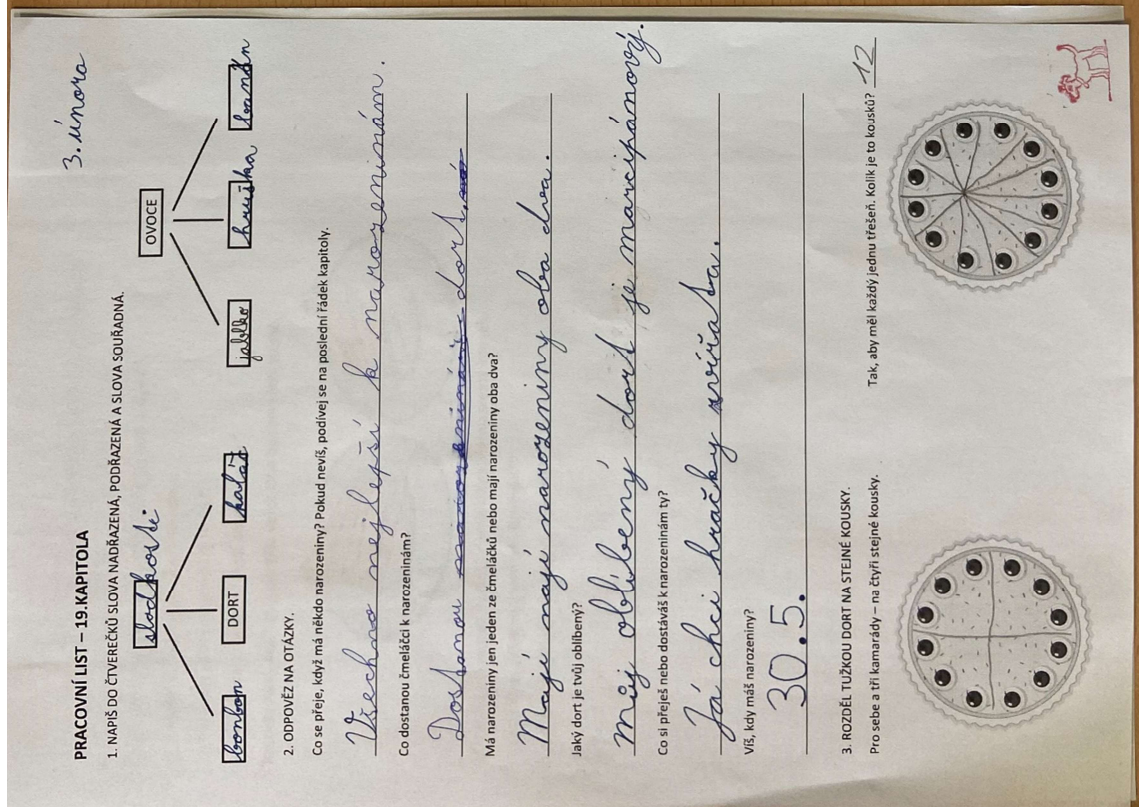 3. února
PRACOVNÍ LIST – 19.KAPITOLA
1. NAPIŠ DO ČTVEREČKŮ SLOVA NADŘAZENÁ, PODŘAZENÁ A SLOVA SOUŘADNÁ.
sladkosti OVOCE
bonbon DORT koláč jablko hruška banán
2. ODPOVĚZ NA OTÁZKY.
Co se přeje, když má někdo narozeniny? Pokud nevíš, podívej se na poslední řádek kapitoly.
Všechno nejlepší k narozeninám.
Co dostanou čmeláčci k narozeninám?
Dostanou dort.
Má narozeniny jen jeden ze čmeláčků nebo mají narozeniny oba dva?
Mají mají narozeniny oba dva.
Jaký dort je tvůj oblíbený?
Můj oblíbený dort je marcipánový.
Co si přeješ nebo dostáváš k narozeninám ty?
Já chci hračky zvířata.
Víš, kdy máš narozeniny?
30.5.
3. ROZDĚL TUŽKOU DORT NA STEJNÉ KOUSKY.
Pro sebe a tři kamarády – na čtyři stejné kousky. Tak, aby měl každý jednu třešeň. Kolik je to kousků? 12